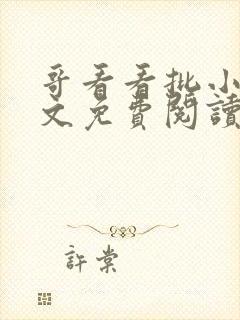 哥看看批小
文免費閱讀
許棠